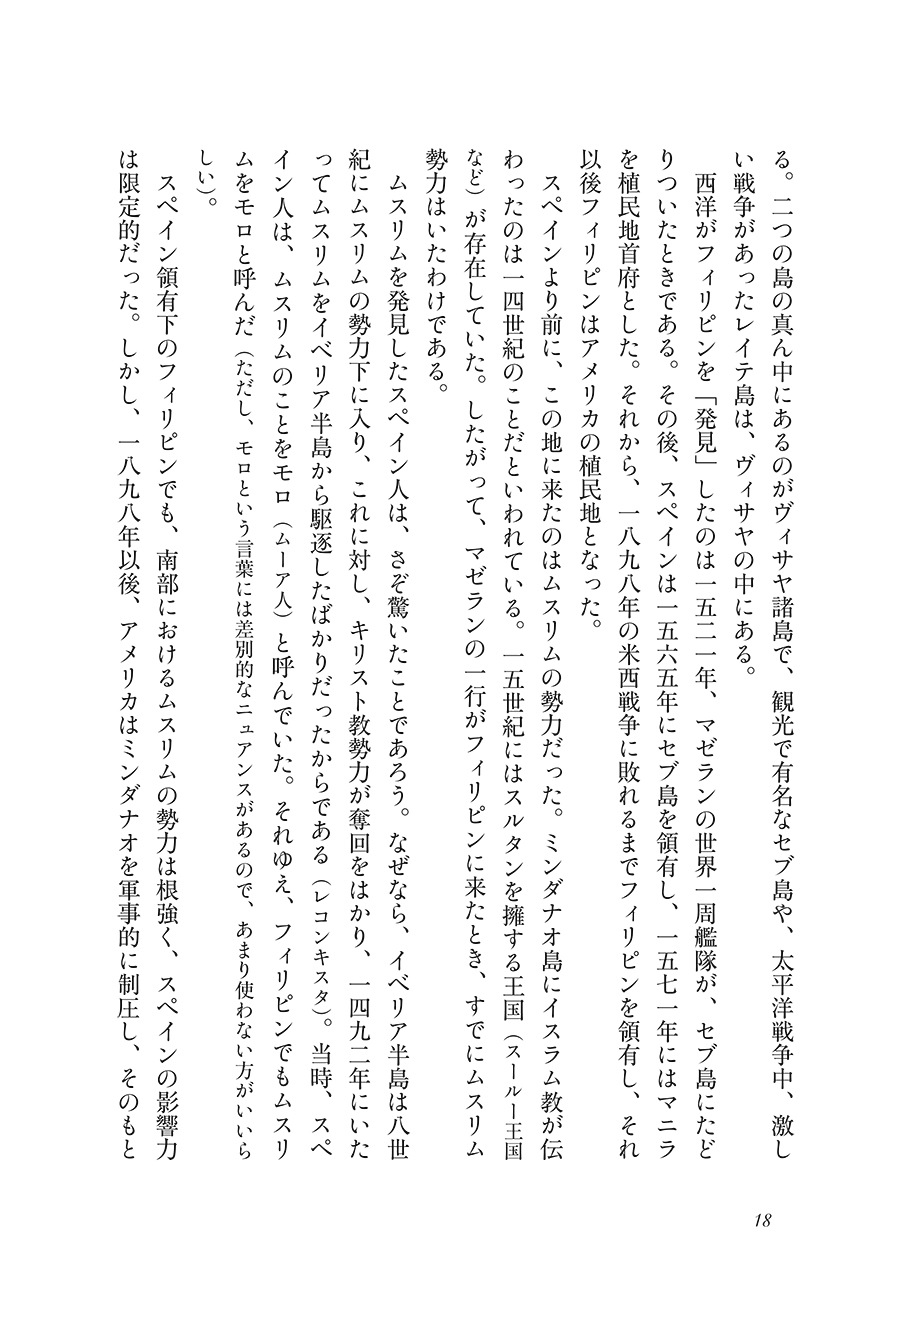 る。二つの島の真ん中にあるのがヴィサヤ諸島で、観光で有名なセブ島や、太平洋戦争中、激し
い戦争があったレイテ島は、ヴィサヤの中にある。
西洋がフィリピンを「発見」したのは一五二一年、マゼランの世界一周艦隊が、セブ島にたど
りついたときである。その後、スペインは一五六五年にセブ島を領有し、一五七一年にはマニラ
を植民地首府とした。それから、一八九八年の米西戦争に敗れるまでフィリピンを領有し、それ
以後フィリピンはアメリカの植民地となった。
スペインより前に、この地に来たのはムスリムの勢力だった。ミンダナオ島にイスラム教が伝
わったのは一四世紀のことだといわれている。一五世紀にはスルタンを擁する王国（スールー王国
など）が存在していた。したがって、マゼランの一行がフィリピンに来たとき、すでにムスリム
勢力はいたわけである。
ムスリムを発見したスペイン人は、さぞ驚いたことであろう。なぜなら、イベリア半島は八世
紀にムスリムの勢力下に入り、これに対し、キリスト教勢力が奪回をはかり、一四九二年にいた
ってムスリムをイベリア半島から駆逐したばかりだったからである（レコンキスタ）。当時、スペ
イン人は、ムスリムのことをモロ（ムーア人）と呼んでいた。それゆえ、フィリピンでもムスリ
ムをモロと呼んだ（ただし、モロという言葉には差別的なニュアンスがあるので、あまり使わない方がいいら
しい）。
スペイン領有下のフィリピンでも、南部におけるムスリムの勢力は根強く、スペインの影響力
は限定的だった。しかし、一八九八年以後、アメリカはミンダナオを軍事的に制圧し、そのもと
18